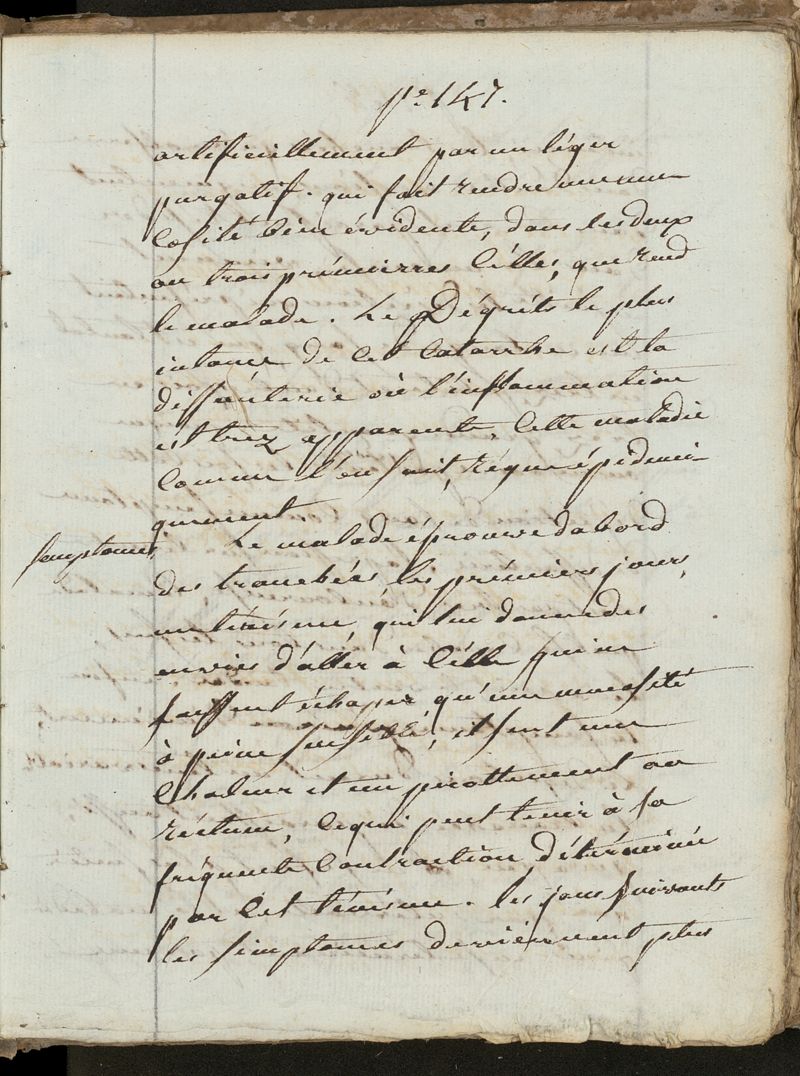 pe. 147.
artificiellement par un léger
purgatif. qui fait rendre une mu
cosité bien évidente, dans les deux
ou trois prémierres Célles, que rend
le malade. Le Dégrés le plus
intance de Cet Catarrhe est la
dissenterie où l'inflammation
est trez apparente, Cette maladie
Comme l'on sait, régne épidemi-
quement.
Simptomes. Le malade éprouve dabord
des tranchées les prémiers jours,
un ténésme, qui lui donne des
envies d'aller à Célle qui ne
laissent échaper qu'une mucosité
à peine sensible, il sent une
Chaleur et un picottement au
réctum, Ce qui peut tenir à la
fréquente Contraction détérminée
par Cet ténésme. les jours suivants
les simptomes deviénnent plus